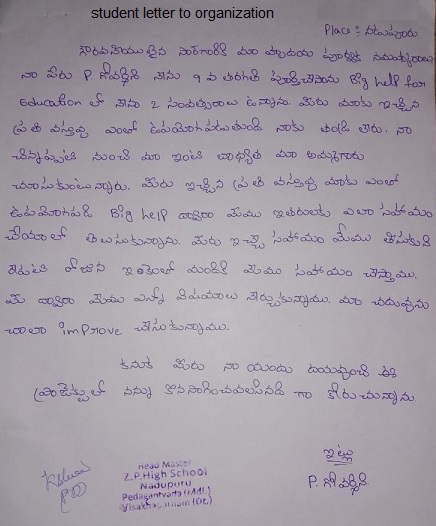 student letter to organization
Place :- నడుపూరు
గౌరవనీయులైన సార్‌గారికి మా హృదయ పూర్వక నమస్కారాలు,
నా పేరు P. గోవర్ధిని నేను 9 వ తరగతి పూర్తిచేసాను Big help for
Education లో నేను 2 సంవత్సరాలు ఉన్నాను. మీరు మాకు ఇచ్చిన
ప్రతి వస్తువు ఎంతో ఉపయోగపడుతుంది నాకు తండ్రి లేరు. నా
చిన్నప్పటి నుంచి మా ఇంటి బాధ్యత మా అమ్మగారు
చూసుకుంటున్నారు. మీరు ఇచ్చిన ప్రతి వస్తువు మాకు ఎంతో
ఉపయోగపడి Big help ద్వారా మేము ఇతరులకు ఎలా సహాయం
చేయాలో తెలుసుకున్నాను. మీరు ఇచ్చే సహాయం మేము తీసుకుని
రోజున ఇంకెంతో మందికి మేము సహాయం చేస్తాము.
మీ ద్వారా మేము ఎన్నో విషయాలు నేర్చుకున్నాము. మా చదువును
చాలా improve చేసుకున్నాము.
కనుక మీరు నా యందు దయవుంచి ఈ
ప్రాజెక్టులో నన్ను కొనసాగించవలసినది గా కోరుచున్నాను
ఇట్లు
P. గోవర్ధిని
Head Master
Z.P.High School
Nadupuru
Pedagantyada (Mdl.)
Visakhapatnam (Dt.)